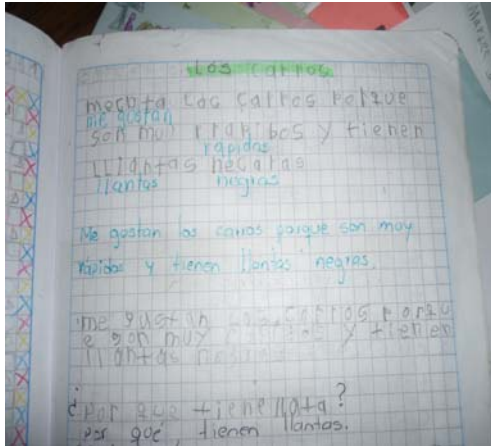 Los carros
mecuta Los carros Porque
me gustan
son mui rrapibos y tienen
rápidas
LLiantas necaras
llantas negras
Me gustan los carros porque son muy
rápidos y tienen llantas negras.
me gustan los carros porqu
e son muy y tienen
llantas
¿Por que tiene llata?
Por qué, tienen llantas.